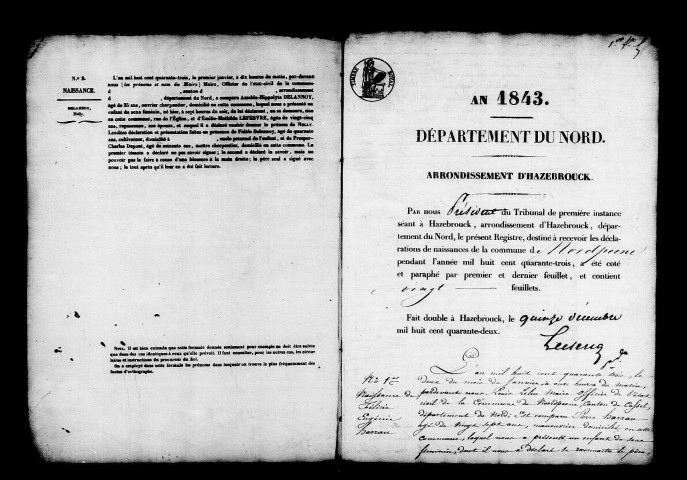 N.º 2.
NAISSANCE.
DELANNOY,
Nelly.
L'an mil huit cent quarante-trois, le premier janvier, à dix heures du matin, par-devant
nous (les prénoms et nom du Maire) Maire, Officier de l'état-civil de la commune
d , canton d , arrondissement
d , département du Nord, a comparu Amable-Hippolyte DELANNOY,
âgé de 35 ans, ouvrier charpentier, domicilié en cette commune, lequel nous a présenté un
enfant du sexe féminin, né hier, à sept heures du soir, de lui déclarant, en sa demeure, sise
en cette commune, rue de l'Église, et d'Émilie-Mathilde LEFEBVRE, âgée de vingt-cinq
ans, repasseuse, son épouse, et auquel il a déclaré vouloir donner le prénom de NELLY.
Lesdites déclaration et présentation faites en présence de Fidèle Delannoy, âgé de quarante
ans, cultivateur, domicilié à , oncle paternel de l'enfant, et de Prosper-
Charles Dupont, âgé de soixante ans, maître charpentier, domicilié en cette commune. Le
premier témoin a déclaré ne pas savoir signer; le second a déclaré le savoir, mais ne
pouvoir pas le faire à cause d'une blessure à la main droite; le père seul a signé avec
nous; le tout après qu'il leur en a été fait lecture.
NOTA. Il est bien entendu que cette formule donnée seulement pour exemple ne doit être suivie
que dans des cas identiques à ceux qu'elle prévoit. Il faut consulter, pour les autres cas, les circu-
laires et instructions du procureur du Roi.
On a employé dans cette formule les prénoms dans lesquels on trouve le plus fréquemment des
fautes d'orthographe.
AN 1843.
DÉPARTEMENT DU NORD.
ARRONDISSEMENT D'HAZEBROUCK.
PAR NOUS Président du Tribunal de première instance
séant à Hazebrouck, arrondissement d'Hazebrouck, dépar-
tement du Nord, le présent Registre, destiné à recevoir les décla-
rations de naissances de la commune de Noordpeene
pendant l'année mil huit cent quarante-trois, a été coté
et paraphé par premier et dernier feuillet, et contient
vingt feuillets.
Fait double à Hazebrouck, le quinze décembre
mil huit cent quarante-deux.
N.º 1er
Naissance de
Eugénie
Barrau
L'an mil huit cent quarante trois, le
deux du mois de janvier à onze heures du matin,
pardevant nous Louis Maire officier de l'état
civil de la Commune de Noordpeene, Canton de Cassel,
département du Nord, est comparu Pierre Barrau
âgé de vingt sept ans, manouvrier domicilié en cette
commune, lequel nous a présenté un enfant du sexe
féminin, dont il nous a déclaré être le père,